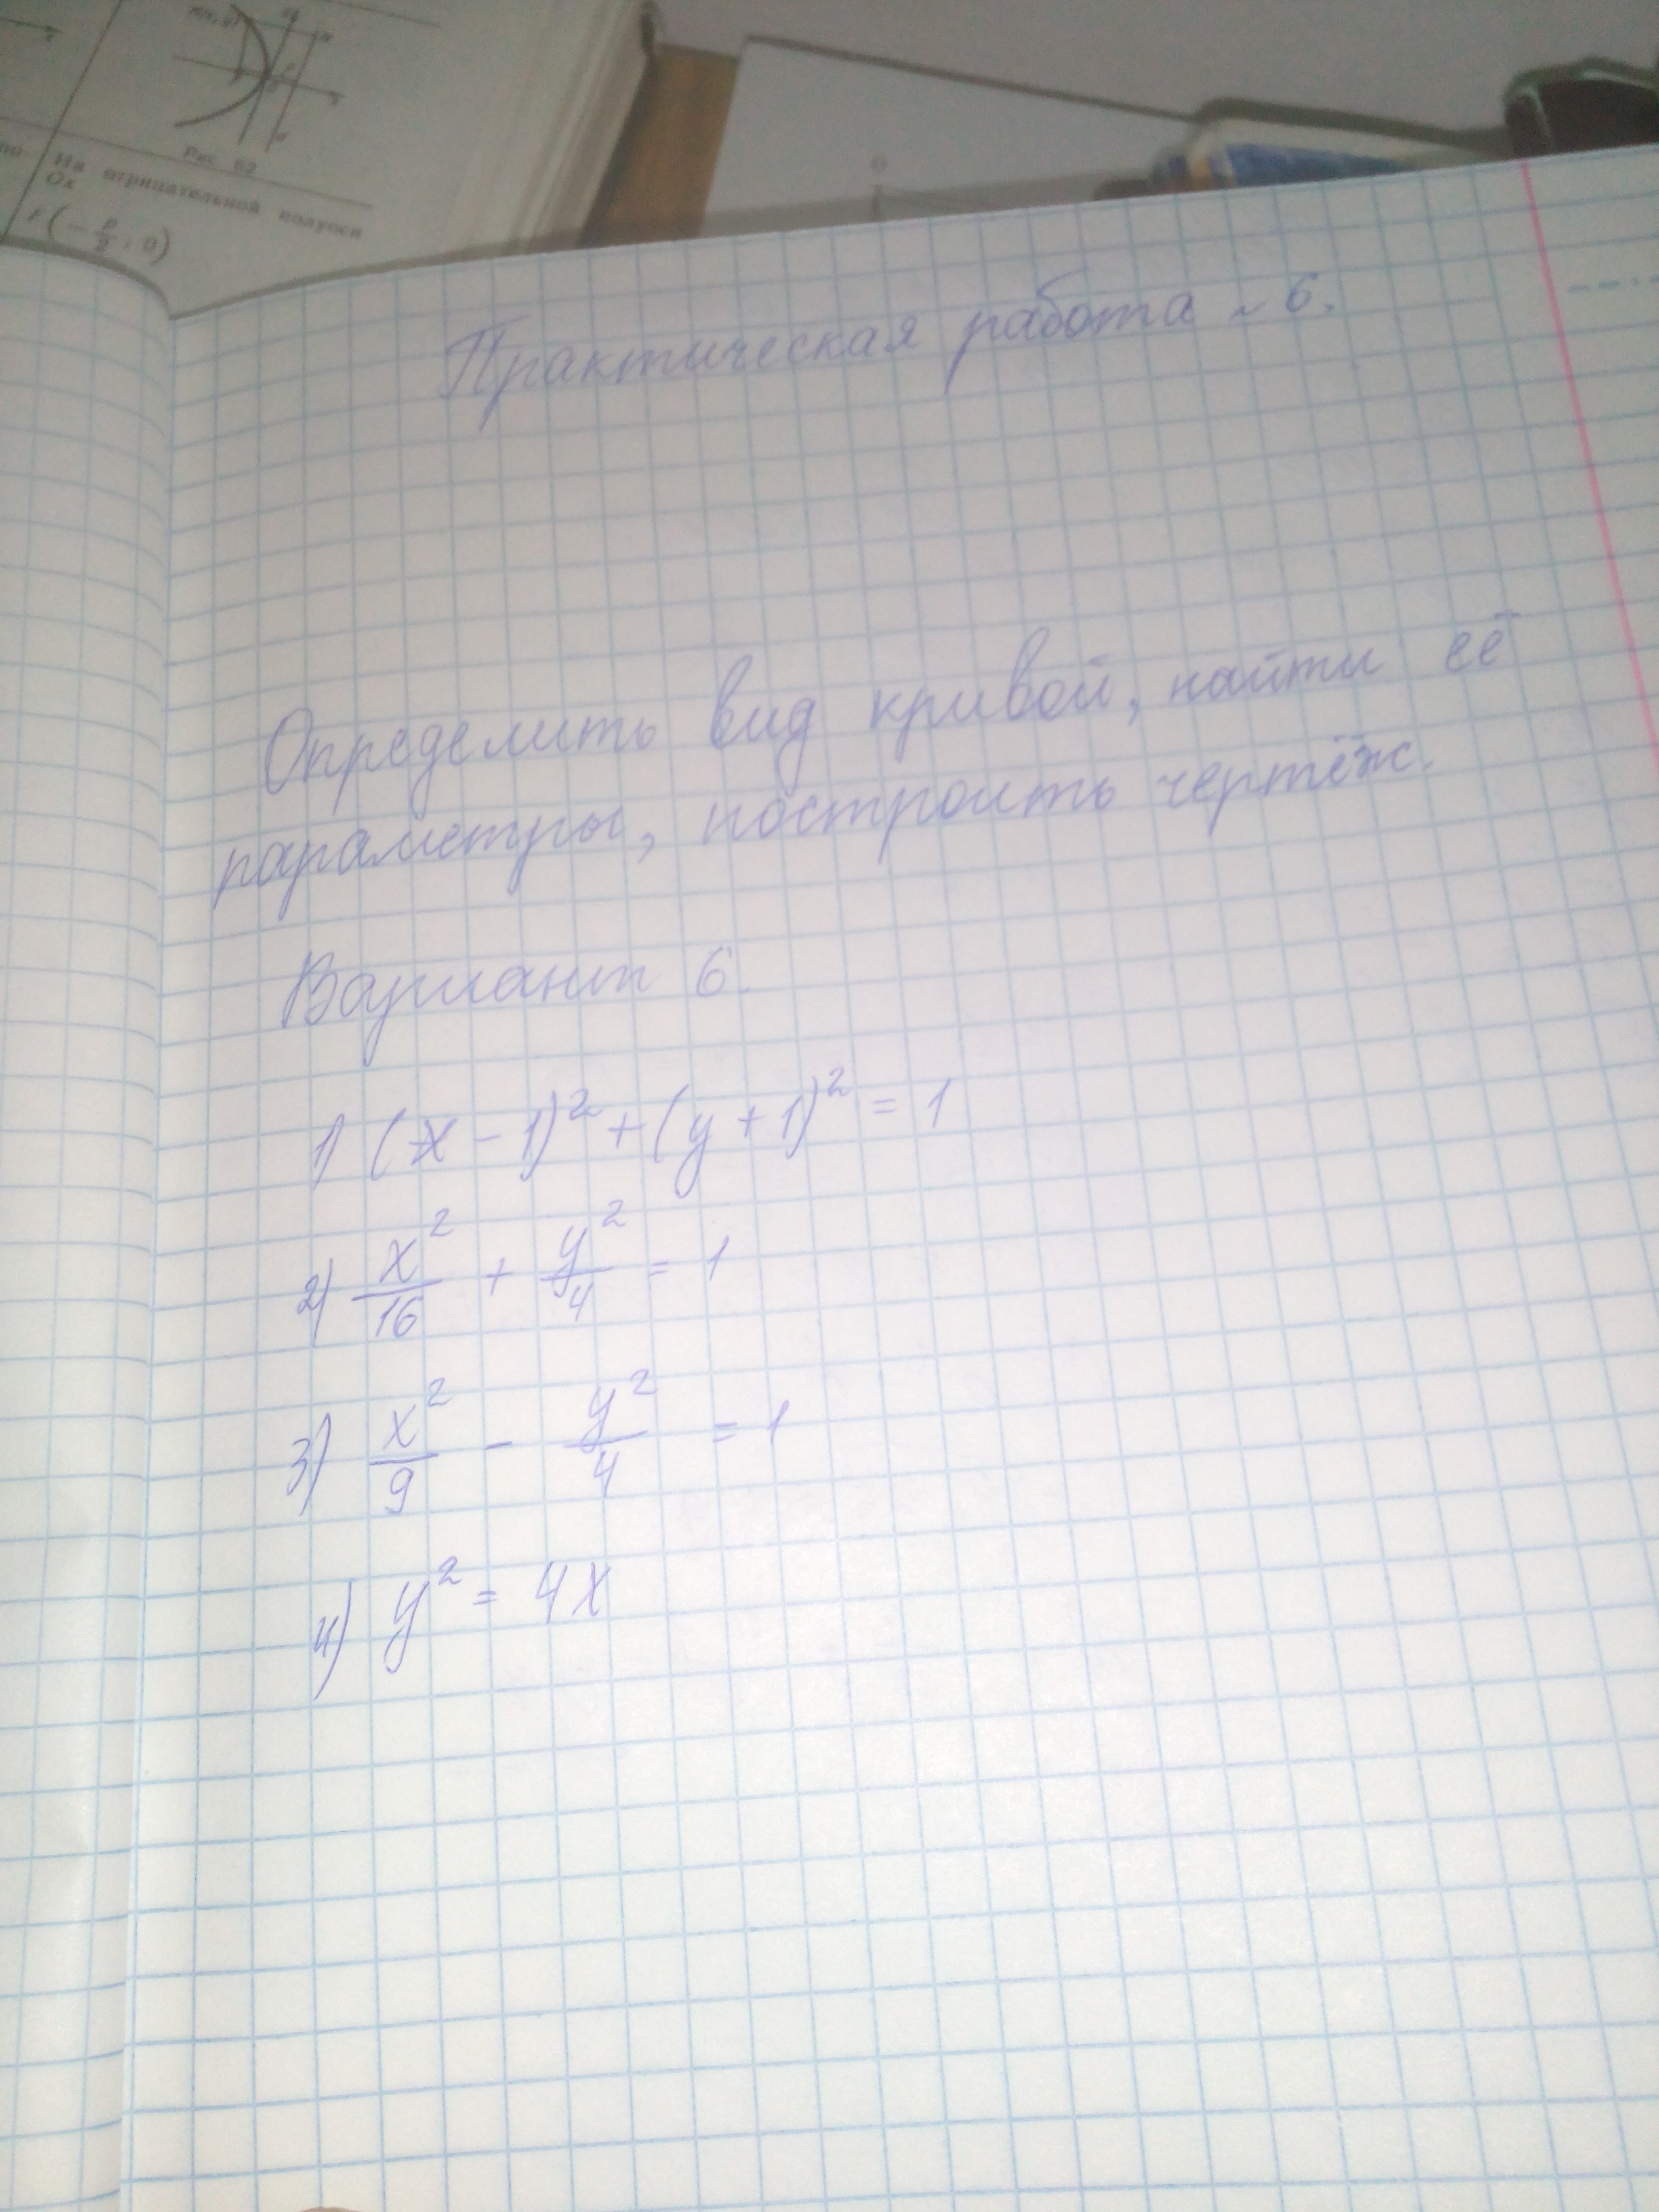 M(x, y)
Рис. 62
На отрицательной полуоси
Ox
F(-p/2, 0)
Практическая работа № 6.
Определить вид кривой, найти её
параметры, построить чертёж.
Вариант 6.
1) (x - 1)² + (y + 1)² = 1
2) x²/16 + y²/4 = 1
3) x²/9 - y²/4 = 1
4) y² = 4x